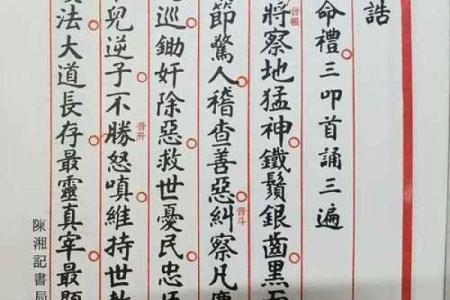 誥
命禮三叩首誦三遍
將察地猛神鐵鬚銀齒黑石
音帳
節驚人稽查善惡糾察凡塵
音斗
巡鋤奸除惡救世憂民忠臣
兒逆子不勝怒嗔維持世教
音升
法大道長存最靈真宰最顯
陳湘記書局